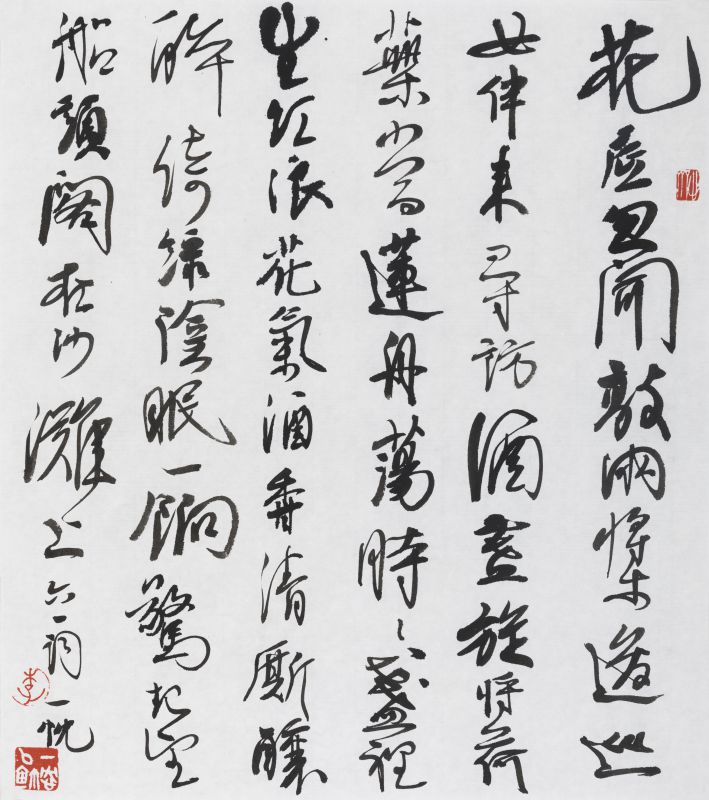 花底忽聞敲兩槳逡巡
女伴來尋訪酒盞旋將荷
葉當蓮舟蕩時〻盞裡
生紅浪花氣酒香清廝釀
醉倚綠陰眠一餉驚起望
船頭閣在沙灘上六一詞一
李